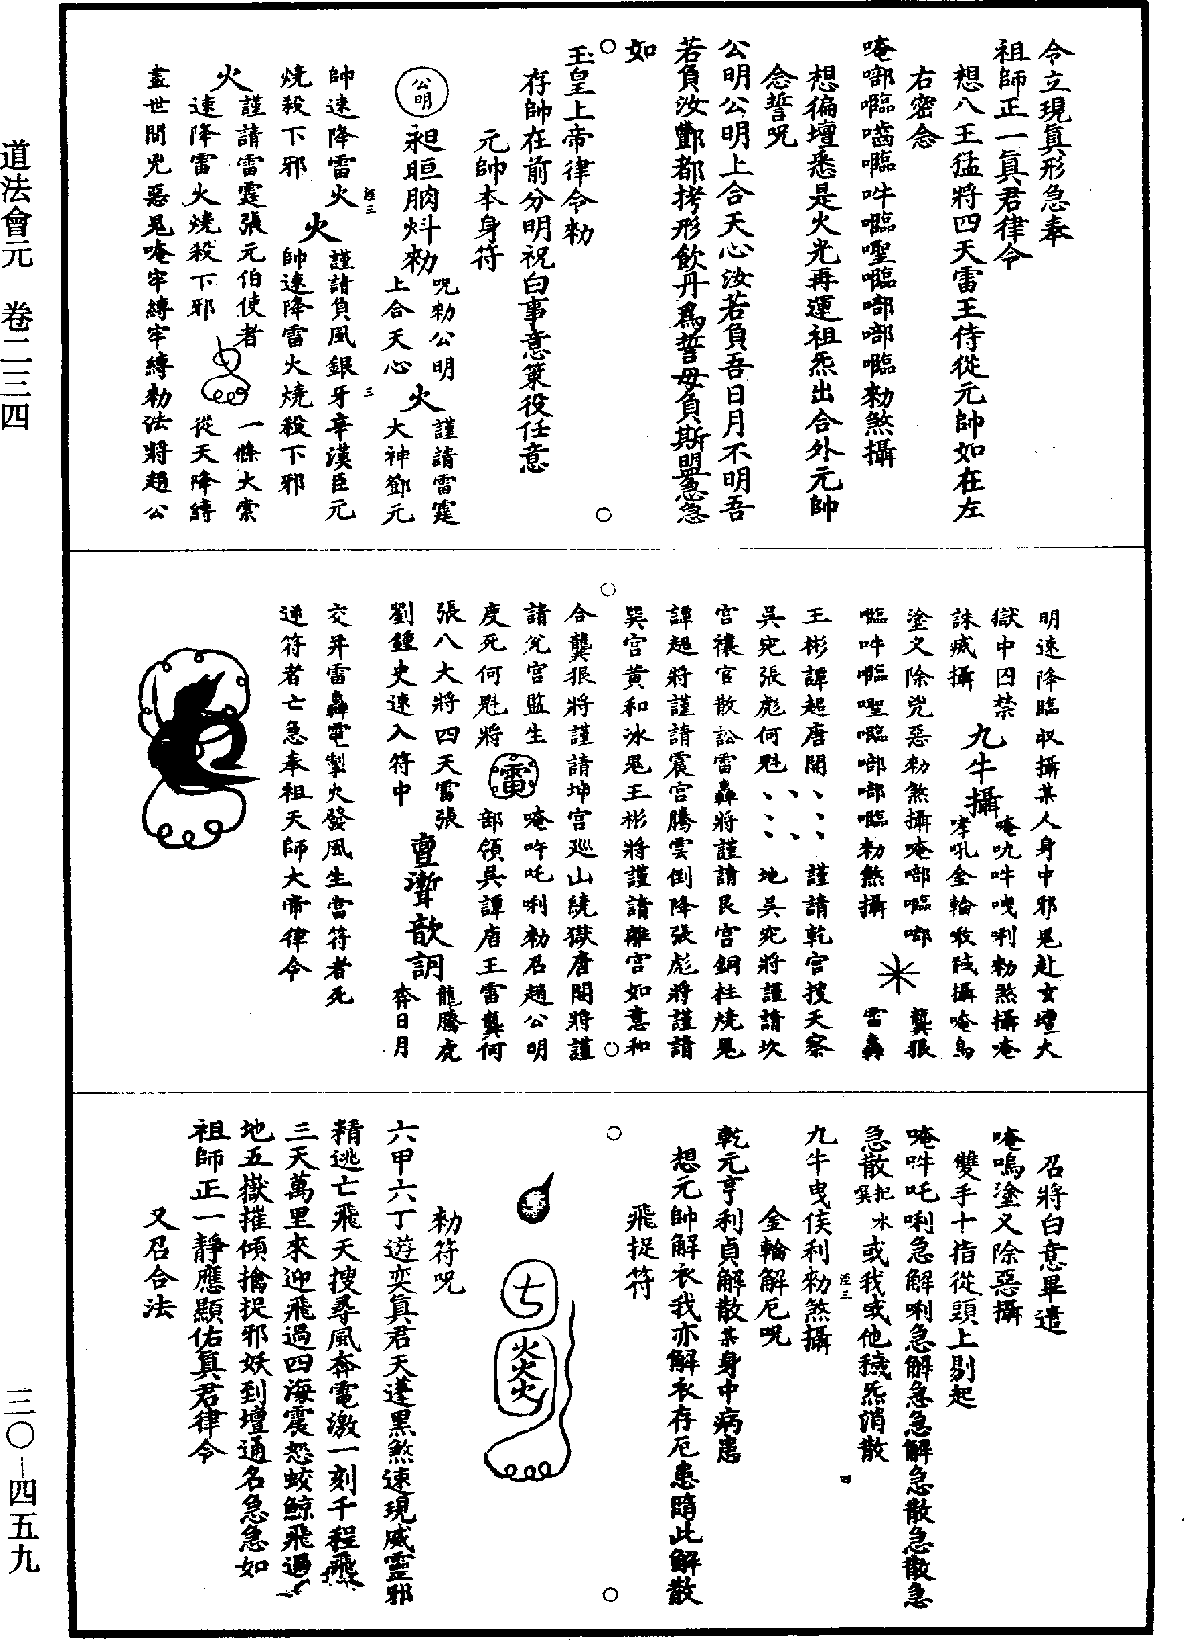 令立現真形急奉
祖師正一真君律令
想八王猛將四天雷王侍從元帥如在左
右密念
唵啷𠾱嚙𠾱吽𠾱𡄔𠾱啷啷𠾱勑煞攝
想徧壇悉是火光再運祖炁出合外元帥
念誓呪
公明公明上合天心汝若負吾日月不明吾
若負汝酆都拷形飲丹爲誓毋負斯盟急急
如
玉皇上帝律令勑
存帥在前分明祝白事意策役任意
元帥本身符
公明
勑
呪勑公明
上合天心
火
謹請雷霆
大神鄧元
帥速降雷火
燒殺下邪
火
謹請負風銀牙辛漢臣元
帥速降雷火燒殺下邪
火
謹請雷霆張元伯使者
速降雷火燒殺下邪
一條大索
從天降縛
盡世間兇惡鬼唵牢縛牢縛勑法將趙公
明速降臨収攝某人身中邪鬼赴玄壇大
獄中囚禁
九牛攝
唵吽曳唎勑煞攝唵
哮吼金輪攝唵烏
誅攝
塗又除兇惡勑煞攝
勑煞攝
龔狠
雷轟
王彬譚超唐閑
謹請乾宮搜天察
地吳宛將謹請坎
吳宛張彪何魁
宮禳官散訟雷轟將謹請艮宮銅柱燒鬼
譚超將謹請震宮騰雲倒降張彪將謹請
巽宮黄和冰鬼王彬將謹請離宮如意和
合龔狠將謹請坤宮巡山繞獄唐閑將謹
請兌宮監生
度死何魁將
雷
唵吽吒唎勑召趙公明
部領吳譚唐王雷龔何
張八大將四天雷張
劉鍾史速入符中
龍騰虎
奔日月
交并雷轟電掣火發風生當符者死
逆符者亡急奉祖天師大帝律令
召將白意畢遣
唵嗚塗又除惡攝
雙手十指從頭上剔起
唵吽吒唎急解唎急解急急解急散急散急
急散
或我或他穢炁消散
九牛曳俟利勑煞攝
金輪解厄呪
乾元亨利貞解散某身中病患
想元帥解衣我亦解衣存厄患隨此解散
飛捉符
七
火火火
勑符呪
六甲六丁遊奕真君天蓬黑煞速現威靈邪
精逃亡飛天搜尋風奔電激一刻千程飛
三天萬里來迎飛過四海震怒蛟鯨飛過
地五嶽摧傾擒捉邪妖到壇通名急急如
祖師正一靜應顯佑真君律令
又召合法
道法會元　卷二三四
三〇—四五九